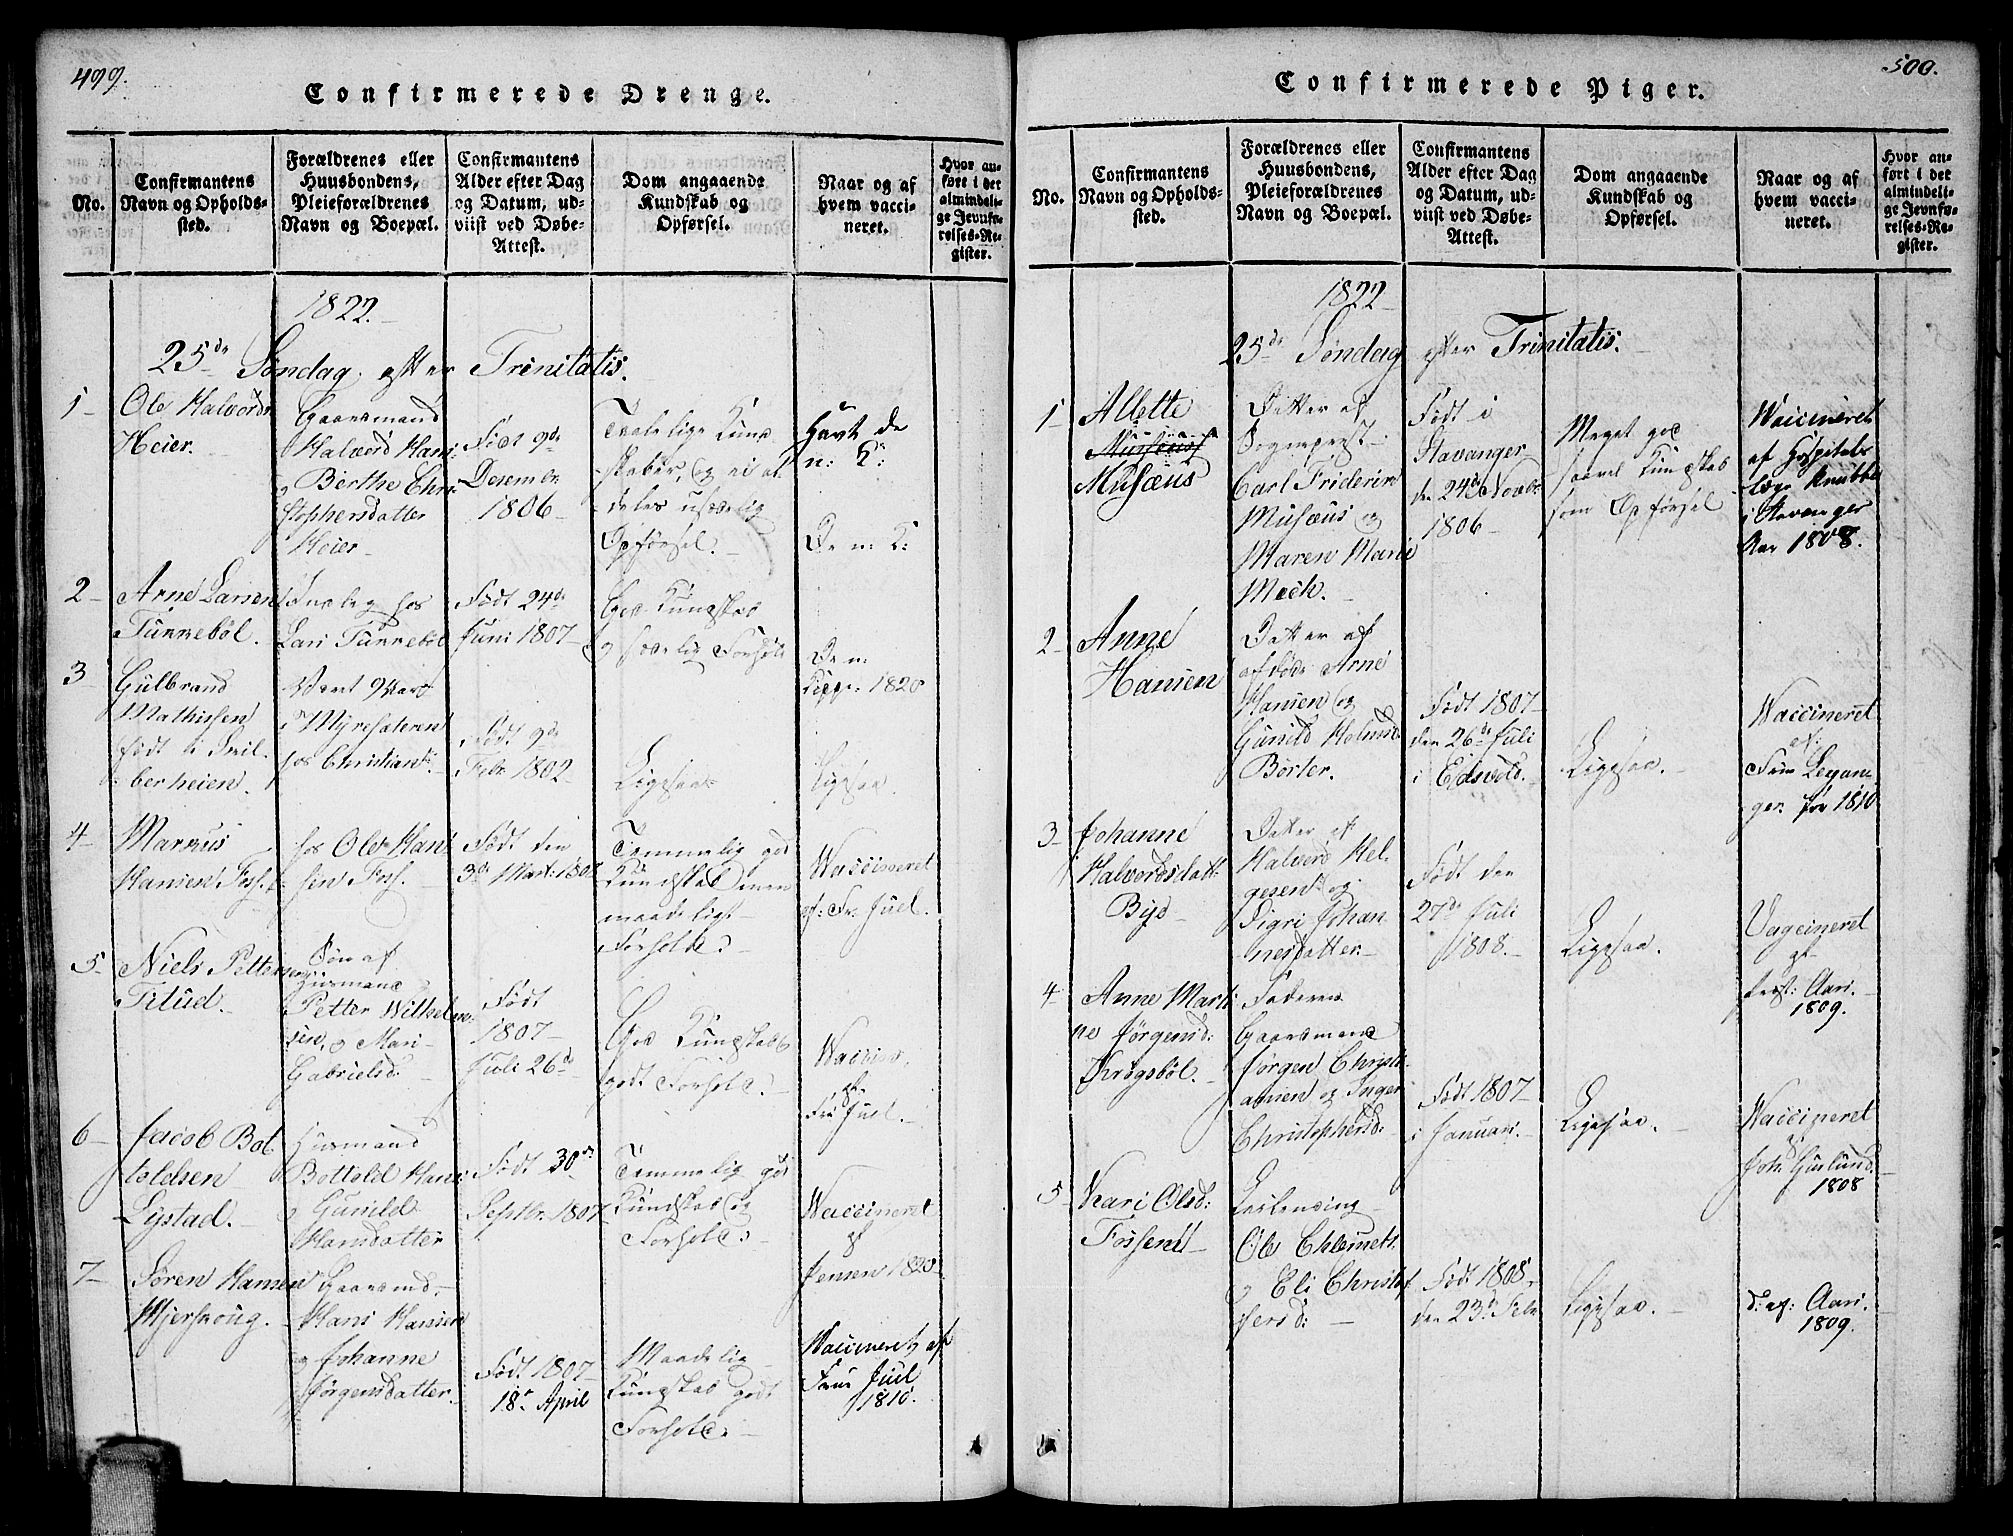 499.
Confirmerede Drenge.
No.
Confirmantens
Navn og Opholds-
sted.
Forældrenes eller
Huusbondens,
Pleieforældrenes
Navn og Boepæl.
Confirmantens
Alder efter Dag
og Datum, ud-
viist ved Døbe-
Attest.
Dom angaaende
Kundskab og
Opførsel.
Naar og af
hvem vacci-
neret.
Hvor an-
ført i det
almindeli-
ge Jevnfø-
relses-Re-
gister.
1822.
25de Søndag efter Trinitatis.
1
Ole Halvords.
Heier.
Gaardmand
Halvord Hans.
og Berthe Chri-
stophersdatter
Heier
Født 9de
Desembr
1806
Taalelige Kund-
skaber, og ei al-
deles usædelig
Opførsel.
Havt de
n: K:
De n: K:
2
Arne Larsen
Tünnebøl.
Inderlg hos
Lars Tünnebøl
Født 24de
Juni 1807
God Kundskab
og sædelig Forhold
De n:
Kopper 1820
3
Gulbrand
Mathissen
født i Svil-
berheien.
Været 9 Aar
i Myresæteren
hos Christian
Født 9de
Febr 1802
Ligesaa
Ligesaa.
4
Markus
Hansen Foss.
hos Ole Han-
sen Foss.
Født den
3de Mart: 180
Temmelig god
Kundskab men
maadeligt
Forhold.
Waccineret
af: Fr. Juel.
5
Niels Pettersen
Titud.
Søn af
Huusmand
Petter Wilhelm-
sen, og Mari
Gabrielsd:
Født
1807
Juli 26de
God Kundskab
godt Forhold.
Waccine.
af
Fru Juel.
6
Jacob Bot
toldsen
Lystad.
Huusmand
Bottold Hans:
og Gunild
Hansdatter
Født 30de
Septbr. 1807
Temmelig god
Kundskab og
Forhold.
Waccineret
af
Jensen 1820
7
Søren Hansen
Mjerskoug.
Gaardmd.
Hans Hansen
og Johanne
Jørgensdatter
Født 1807
18de April
Maadelig
Kundskab godt
Forhold.
Waccineret af
Frue Juel
1810.
500.
Confirmerede Piger.
No.
Confirmantens
Navn og Opholds-
sted.
Forældrenes eller
Huusbondens,
Pleieforældrenes
Navn og Boepæl.
Confirmantens
Alder efter Dag
og Datum, ud-
viist ved Døbe-
Attest.
Dom angaaende
Kundskab og
Opførsel.
Naar og af
hvem vacci-
neret.
Hvor an-
ført i det
almindeli-
ge Jevnfø-
relses-Re-
gister.
1822
25de Søndag efter Trinitatis.
1
Allette
Musæus
Musæus
Datter af
Sogneprest
Carl Friderin
Musæus og
Maren Marie
Mech.
Født i
Stavanger
den 24de Novbr
1806
Meget god
saavel Kundskab
som Opførsel
Waccineret
af Hospitals
læge
i Stavanger
Aar 1808.
2
Anne
Hansen
Datter af
afdøde Arne
Hansen og
Gunild Holmsd
Borter.
Født 1807
den 26de Juli
i Eidsvold.
Ligesaa.
Waccineret
af.
Frue Legan-
ger for 1810
3
Johanne
Halvordsdatt:
Byd
Datter af
Halvord Hel-
gesen og
Sigri Johan-
nesdatter
Født den
27de Juli
1808.
Ligesaa.
Vaccineret
af
prost: Aari.
1809.
4
Anne Marti-
ne Jørgensd:
Krogsbøl.
Faderen
Gaardmand
Jørgen Christi-
ansen og Inger
Christophersd:
Født 1807
i Januari.
Ligesaa.
Waccineret
af
Joh: Gislund.
1808
5
Kari Olsd:
Fossend
Ole Chlemett.
og Eli Christof-
fersd:
Født 1808
den 23de Febr
Ligesaa.
d: af: Aari.
1809.